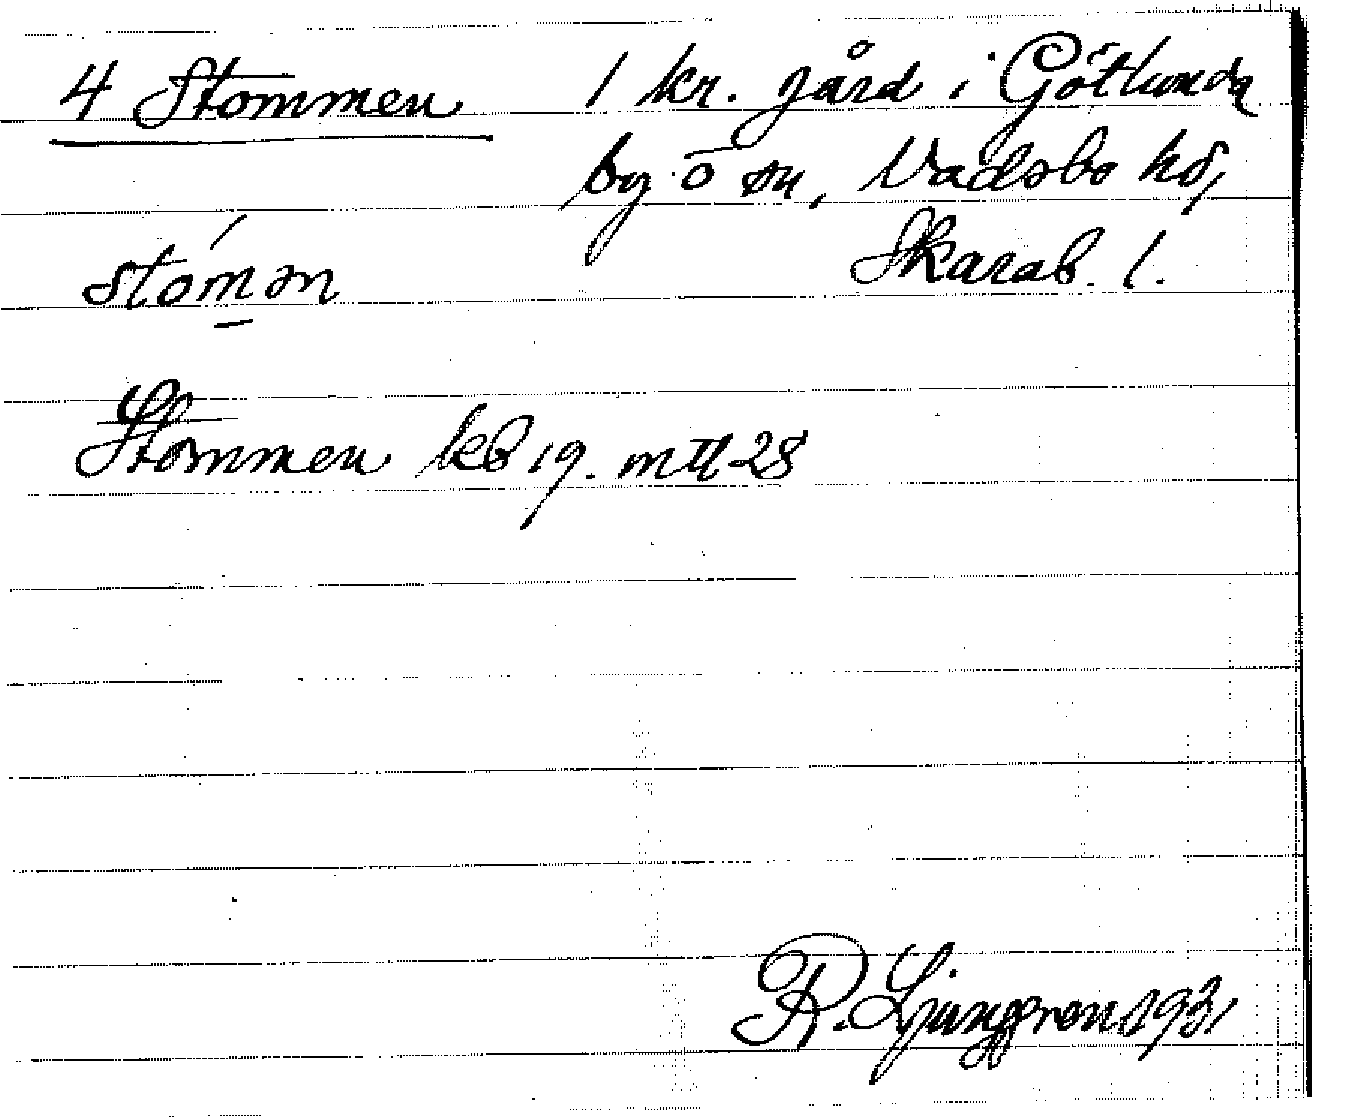 4 Stommen 1 kr. gård i Götlunda
by o sn, Vadsbo hd,
Skarab. l.
stomən
Stommen kb 19. mtl 28
R. Ljunggren 1931